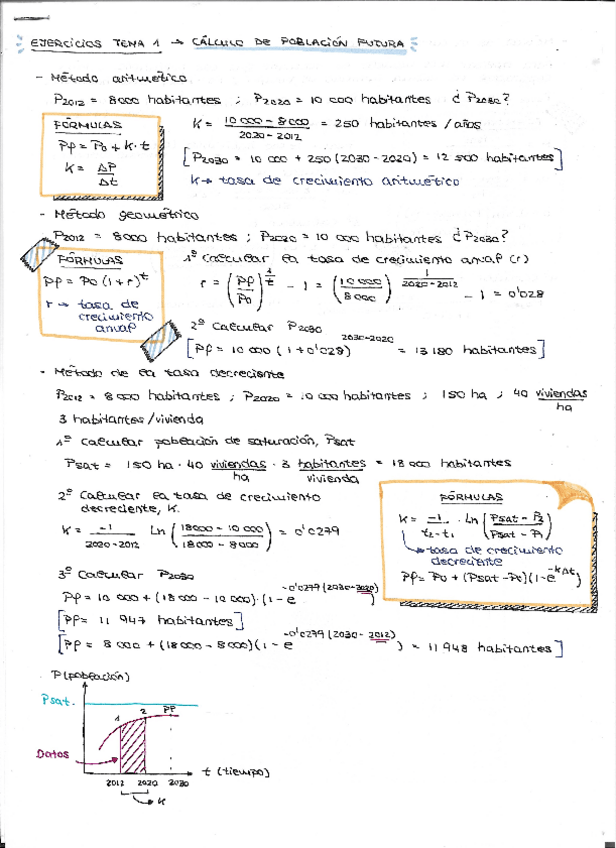 EJERCICIOS TEMA 1 → CÁLCULO DE POBLACIÓN FUTURA
- Método aritmético
P2012 = 8000 habitantes ; P2020 = 10 000 habitantes ¿ P2030?
FÓRMULAS
Pf = Po + K · t
K = ΔP / Δt
K = 10 000 - 8 000 / 2020 - 2012 = 250 habitantes / años
[P2030 = 10 000 + 250 (2030 - 2020) = 12 500 habitantes]
K → tasa de crecimiento aritmético
- Método geométrico
P2012 = 8000 habitantes ; P2020 = 10 000 habitantes ¿ P2030?
FÓRMULAS
Pf = Po (1 + r)^t
r → tasa de
crecimiento
anual
1º Calcular la tasa de crecimiento anual (r)
r = (Pf / Po)^(1/t) - 1 = (10 000 / 8 000)^(1 / 2020 - 2012) - 1 = 0'028
2º Calcular P2030
[Pf = 10 000 (1 + 0'028)^(2030-2020) = 13 180 habitantes]
- Método de la tasa decreciente
P2012 = 8 000 habitantes ; P2020 = 10 000 habitantes ; 150 ha ; 40 viviendas / ha
3 habitantes / vivienda
1º Calcular población de saturación, Psat
Psat = 150 ha · 40 viviendas / ha · 3 habitantes / vivienda = 18 000 habitantes
2º Calcular la tasa de crecimiento
decreciente, K.
K = -1 / 2020 - 2012 Ln (18000 - 10 000 / 18 000 - 8000) = 0'0279
FÓRMULAS
K = -1 / t2 - t1 · Ln (Psat - P2 / Psat - P1)
→ tasa de crecimiento
decreciente
Pf = Po + (Psat - Po)(1 - e^-kΔt)
3º Calcular P2030
Pf = 10 000 + (18 000 - 10 000) · (1 - e^-0'0279 (2030-2020))
[Pf = 11 947 habitantes]
[Pf = 8 000 + (18 000 - 8 000)(1 - e^-0'0279 (2030 - 2012)) = 11 948 habitantes]
P (población)
Psat.
1 2 Pf
Datos
t (tiempo)
2012 2020 2030
K